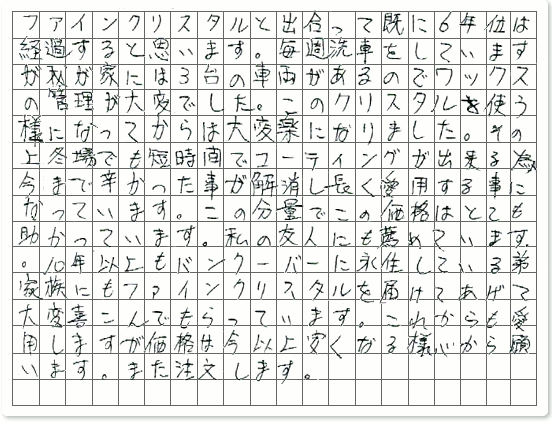 ファインクリスタルと出合って既に6年位は
経過すると思います。毎週洗車をしています
が我が家には3台の車両があるのでワックス
の管理が大変でした。このクリスタルを使う
様になってからは大変楽になりました。その
上冬場でも短時間でコーティングが出来る為
今まで辛かった事が解消し長く愛用する事に
なっています。この分量でこの価格はとても
助かっています。私の友人にも薦めています
。10年以上もバンクーバーに永住している弟
家族にもファインクリスタルを届けてあげて
大変喜こんでもらっています。これからも愛
用しますが価格は今以上安くなる様心から願
います。また注文します。